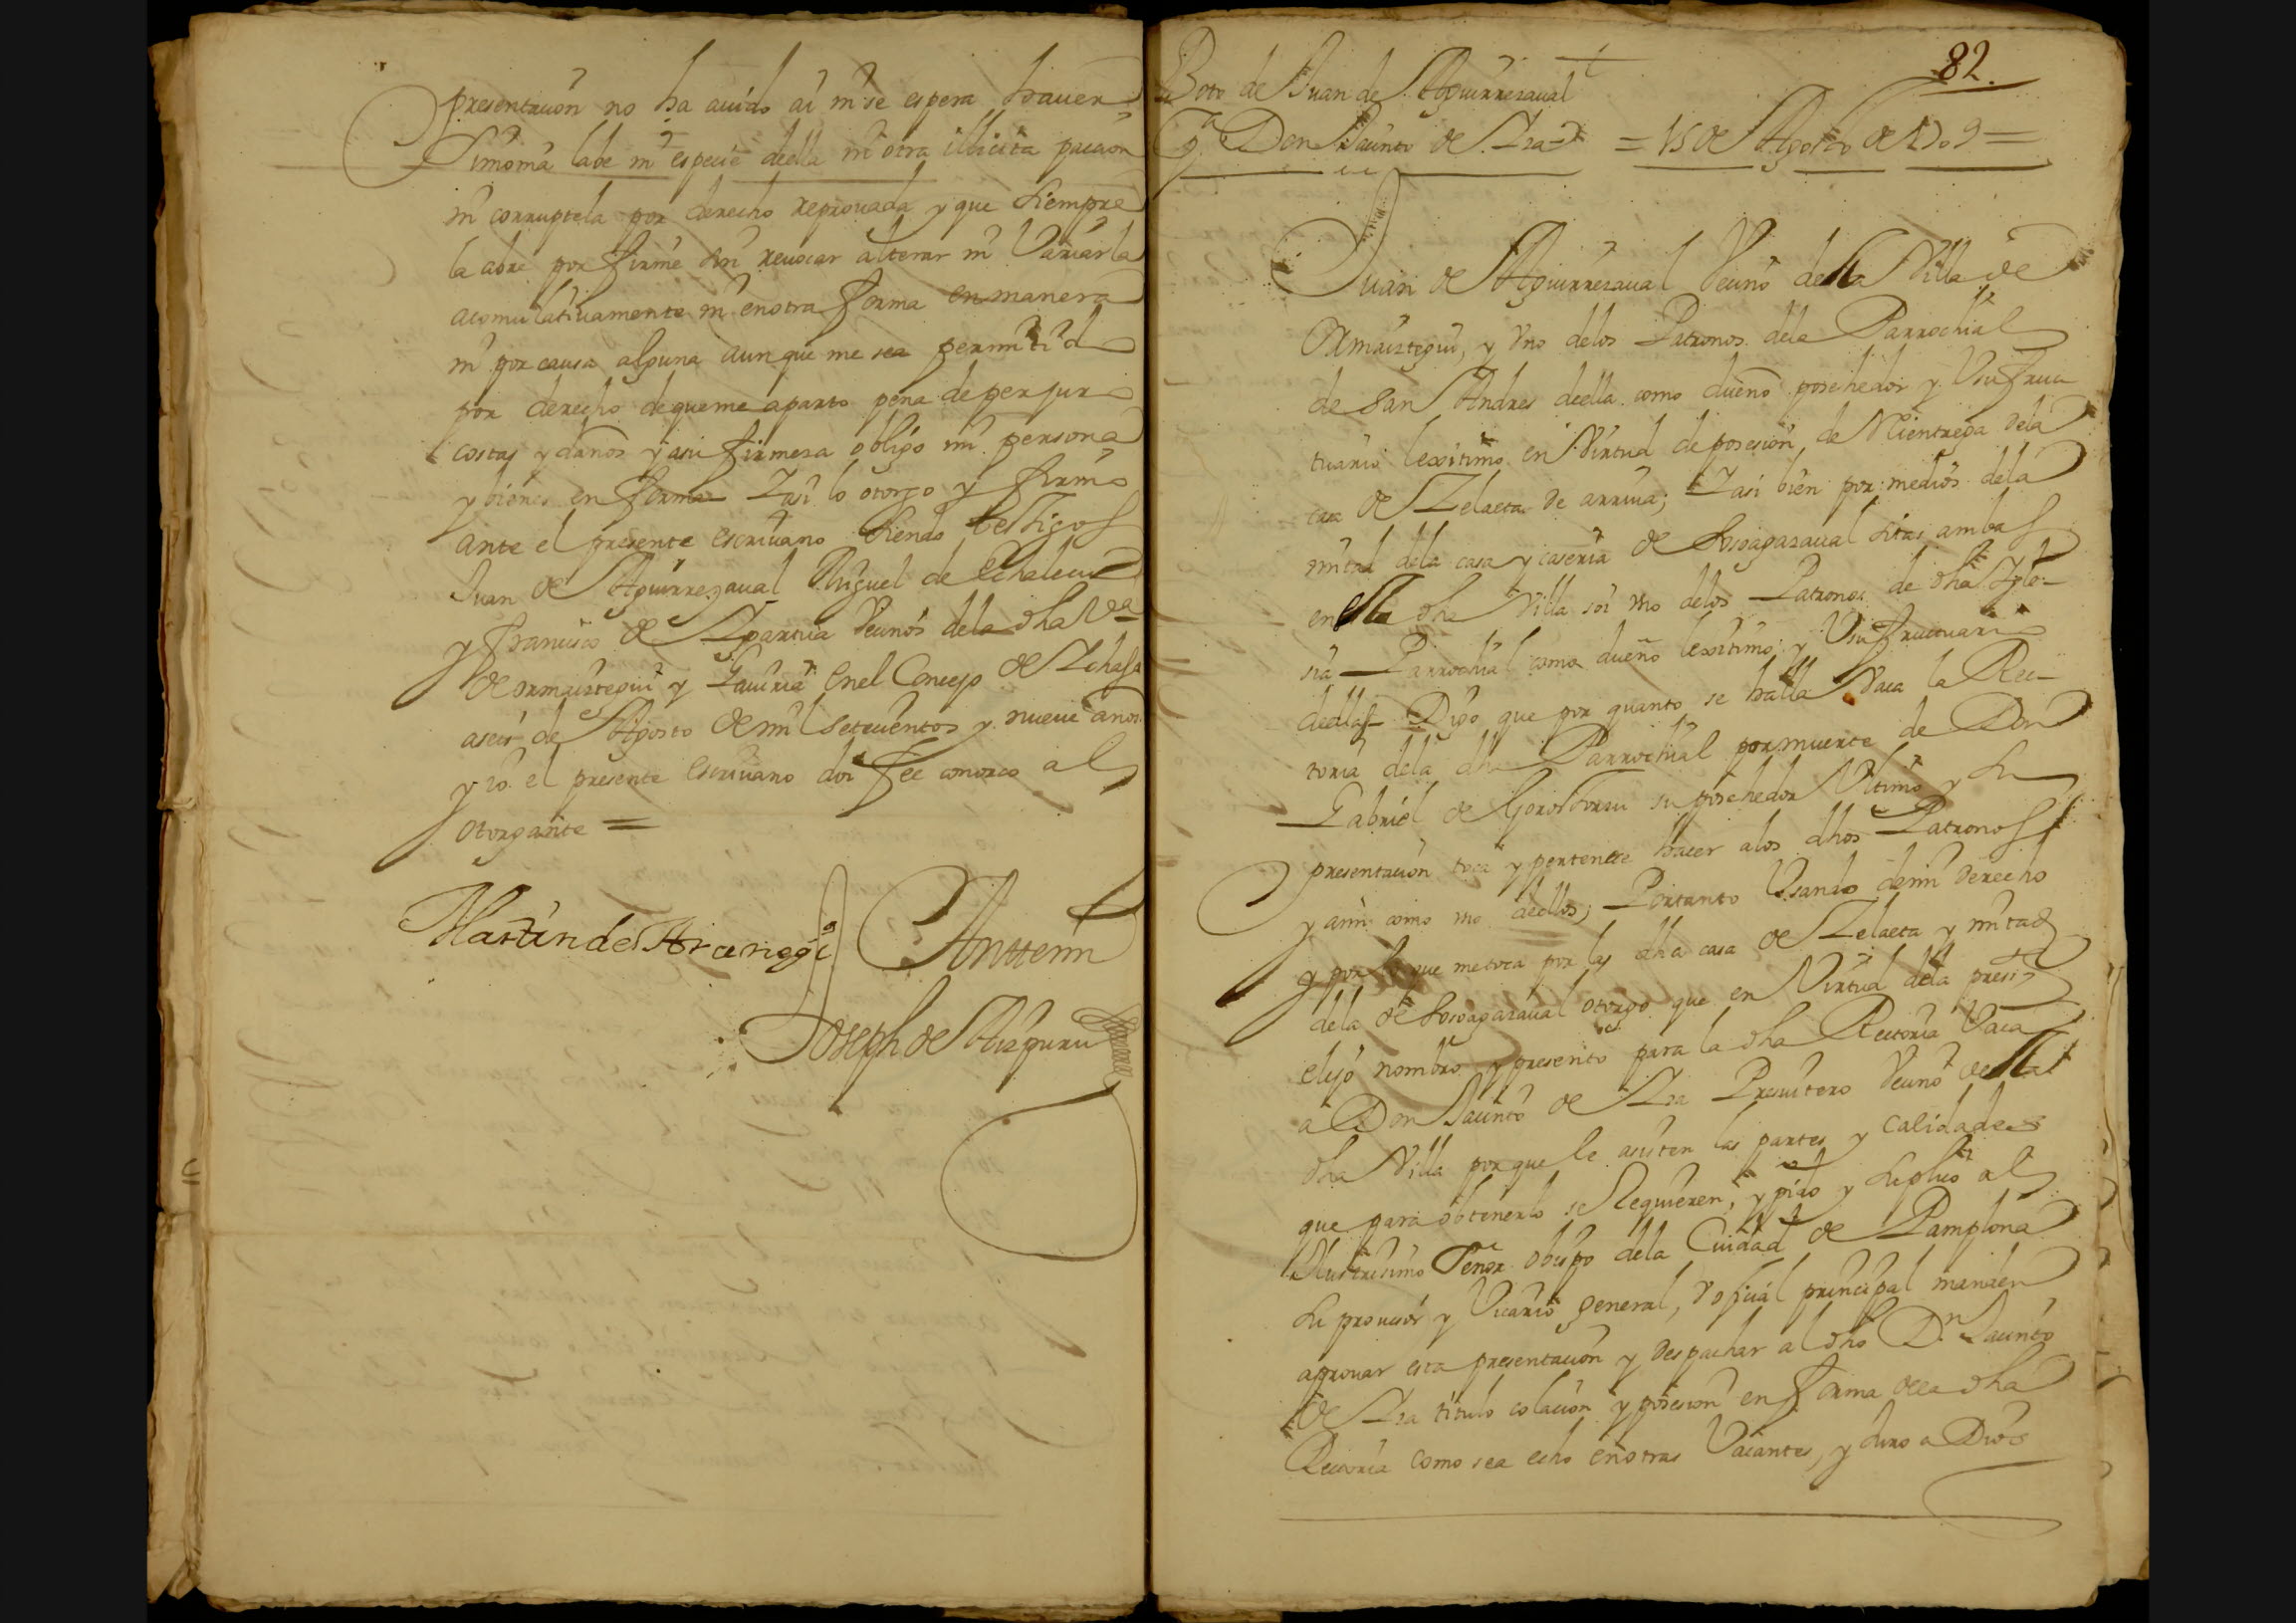 presentacion no ha auido ai ni se espera hauer
simonia labe ni especie della ni otra illicita paccion
ni corruptela por derecho reprouada y que siempre
la abre por firme sin reuocar alterar ni Variarla
acomulatiuamente ni en otra forma en manera
ni por causa alguna aunque me sea permitido
por derecho de que me aparto pena de perjuro
costas y daños y a su firmesa obligo mi persona
y bienes en forma Y asi lo otorgo y firmo
ante el presente escriuano siendo testigos
Juan de Aguirrezaual Miguel de Echalecu
y francisco de Yparraguirre Vecinos de la dha Va
de ormaiztegui y Gauiria en el Concejo de Ychaso
a seis de Agosto de mil setecientos y nueue años
y io el presente escriuano doi fee conozco al
otorgante =
Martin de Aranegi
Antte mi
Joseph de Aizpuru
82.
Boto de Juan de Aguirrezaual
Pa Don Jacinto de Yza = 15 de Agosto de 1709 =
Juan de Aguirrezaual Vecino desta Villa de
Ormaiztegui, y Vno delos Patronos dela Parrochial
de San Andres deella como dueño posehedor y Vsufruc
tuario lexitimo en Virtud de posesion de Nientrega dela
casa de Zelaeta de arriua; Y asi bien por medios dela
mitad dela casa y caseria de Sosoagazaual sitas ambas
en esta dha Villa soi Vno delos Patronos de dha Ygle-
sia Parrochial como dueño lexitimo y Vsufructuario
deellas Digo que por quanto se halla Vaca la Rec-
toria dela dha Parrochial por muerte de Don
Gabriel de Gorostorzu su posehedor Vltimo y su
presentacion toca y pertenece hacer alos dhos Patronos
y ami como Vno deellos; Portanto Vsando demi derecho
y por lo que me toca por las dha casa de Zelaeta y mitad
dela de Sosoagazaual otorgo que en Virtud dela preste
elijo nombro y presento para la dha Rectoria Vaca
a Don Jacinto de Yza Presuitero Vecino desta
dha Villa porque le asisten las partes y calidades
que para obtenerlo se Requieren, y pido y suplico al
Illustrisimo Señor obispo dela Ciudad de Pamplona
su prouisor y Vicario general, V oficial principal manden
aprouar esta presentacion y despachar al dho Dn Jacinto
de Yza titulo colacion y posesion en forma dela dha
Rectoria como sea echo en otras Vacantes, y Juro a Dios